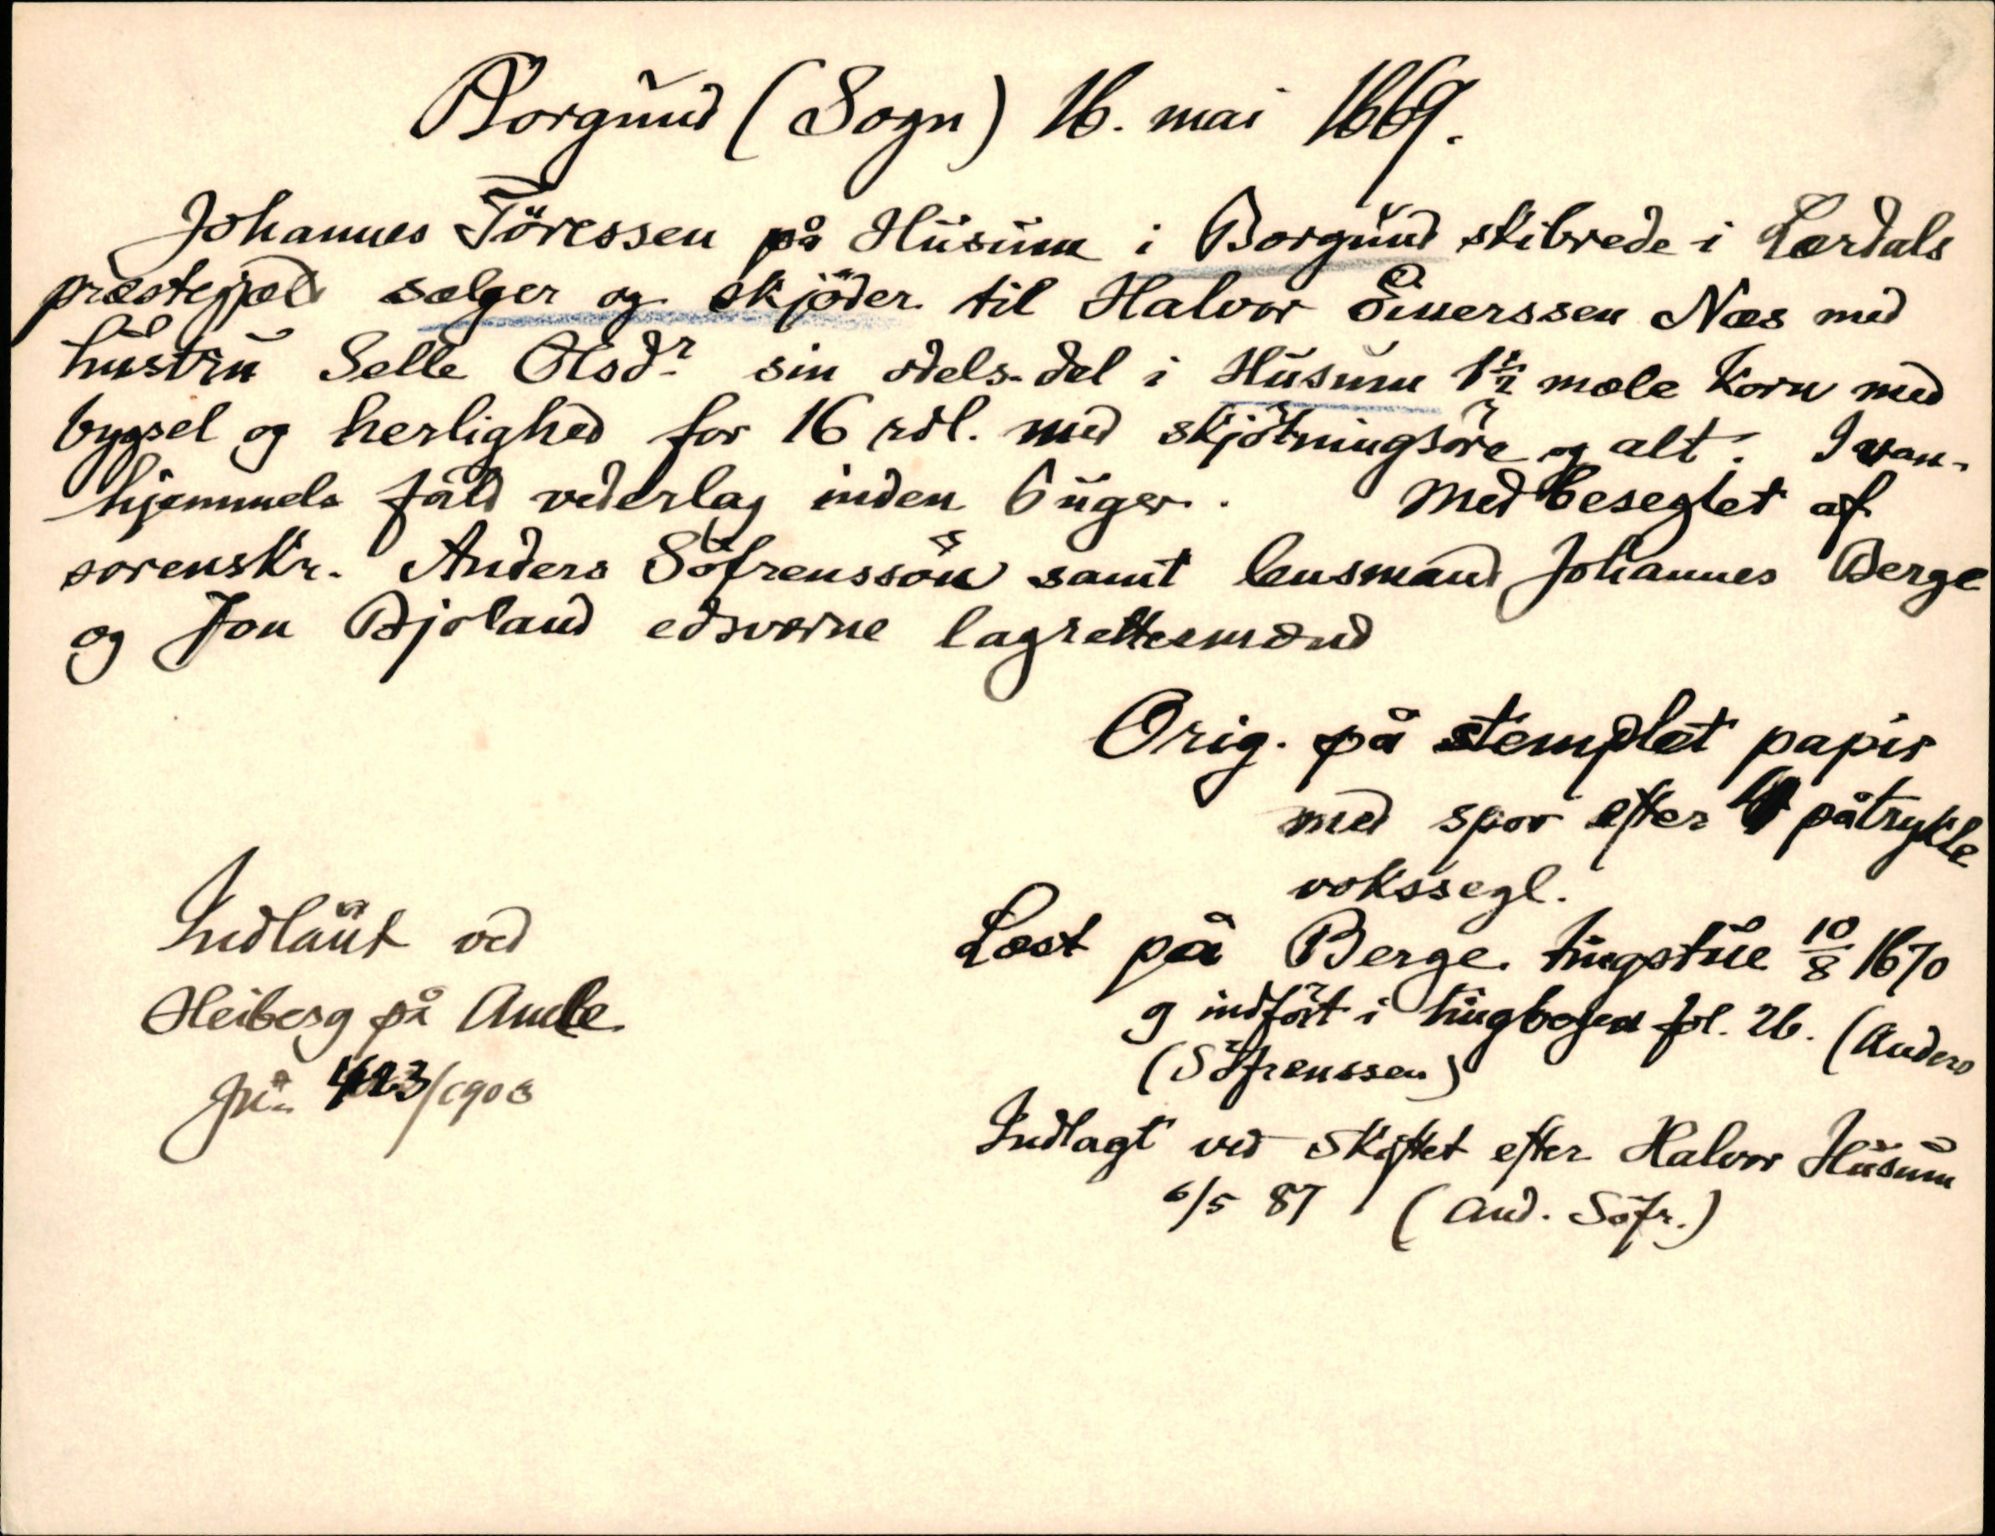 Borgund (Sogn) 16. mai 1669.
Johannes Töressen på Husum i Borgund skibrede i Lærdals
præstegjæld sælger og skjöder til Halvor Einerssen Næs med
hustru Selle Olsdr sin odels-del i Husum 1½ mæle korn med
bygsel og herlighed for 16 rdl. med skjötningsöre og alt. I van-
hjemmels fald vederlag inden 6 uger. Medbeseglet af
sorenskr. Anders Söfrenssön samt lensmand Johannes Berge
og Jon Bjoland edsvorne lagrettesmænd
Orig. på stemplet papir
med spor efter 4 påtrykte
vokssegl.
Indlånt ved
Heiberg på Amble
Jn. 423/1908
Læst på Berge tingstue 10/8 1670
og indfört i tingbogen fol. 26. (Anders
(Söfrenssen)
Indlagt ved skiftet efter Halvor Husum
6/5 87 (And. Söfr.)